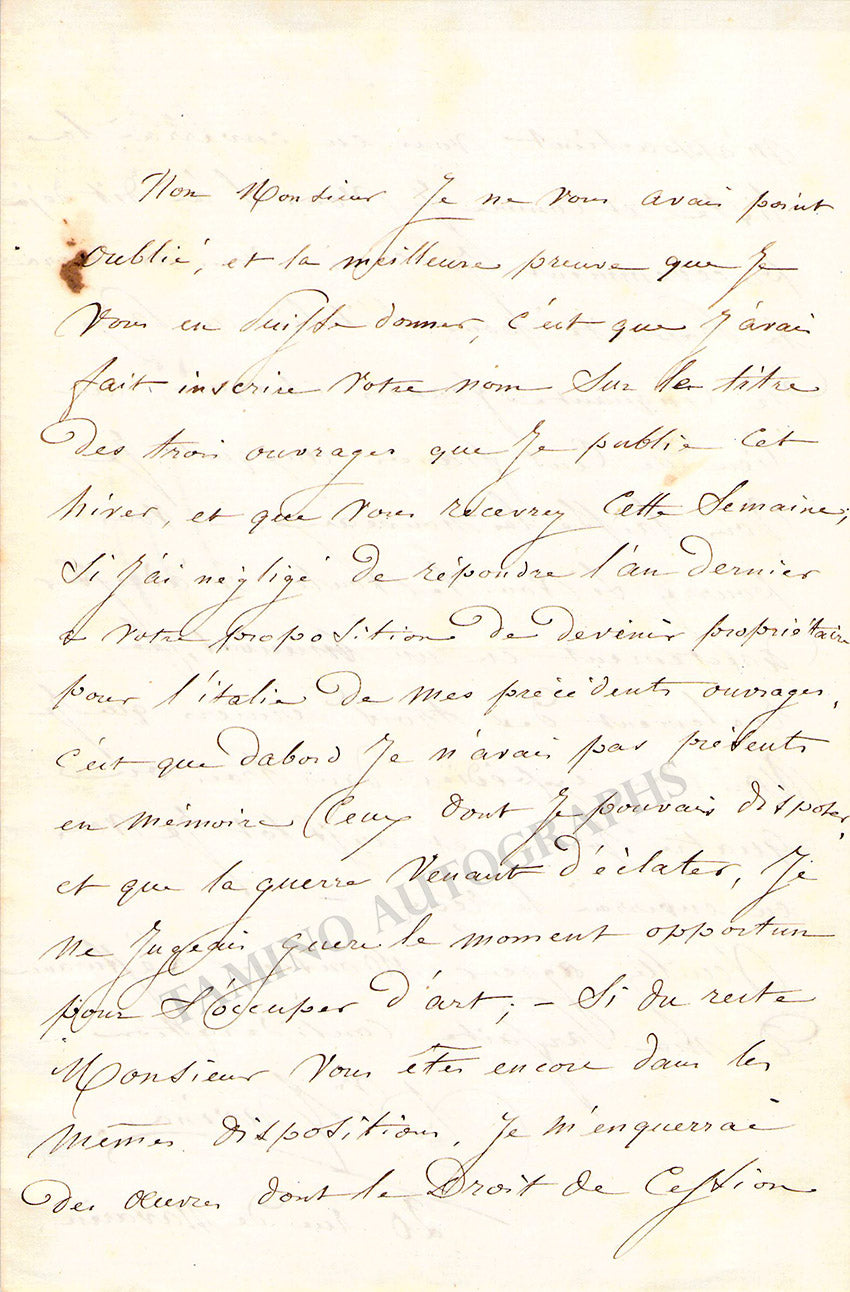 Non Monsieur Je ne vous avais point
oublié, et la meilleure preuve que Je
vous en puisse donner, c'est que J'avais
fait inscrire votre nom sur le titre
des trois ouvrages que Je publie cet
hiver, et que vous recevrez cette semaine;
si J'ai négligé de répondre l'an dernier
a votre proposition de devenir propriétaire
pour l'italie de mes précédents ouvrages,
c'est que dabord Je n'avais pas présents
en mémoire ceux dont Je pouvais disposer,
et que la guerre venant d'éclater, Je
ne Jugeais guere le moment opportun
pour s'occuper d'art; – Si du reste
Monsieur vous êtes encore dans les
mêmes dispositions, Je m'enquerrai
des œuvres dont le Droit de Cession
TAMINO AUTOGRAPHS